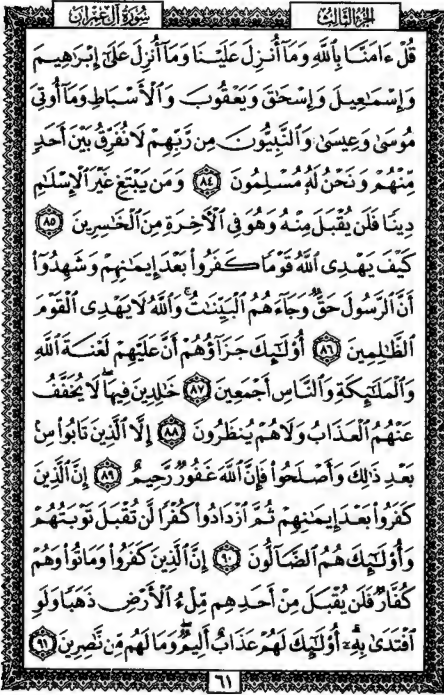 الجزء الثالث
سورة آل عمران
قُلْ ءَامَنَّا بِٱللَّهِ وَمَآ أُنزِلَ عَلَيْنَا وَمَآ أُنزِلَ عَلَىٰٓ إِبْرَٰهِيمَ
وَإِسْمَـٰعِيلَ وَإِسْحَـٰقَ وَيَعْقُوبَ وَٱلْأَسْبَاطِ وَمَآ أُوتِىَ
مُوسَىٰ وَعِيسَىٰ وَٱلنَّبِيُّونَ مِن رَّبِّهِمْ لَا نُفَرِّقُ بَيْنَ أَحَدٍ
مِّنْهُمْ وَنَحْنُ لَهُۥ مُسْلِمُونَ ٨٤ وَمَن يَبْتَغِ غَيْرَ ٱلْإِسْلَـٰمِ
دِينًا فَلَن يُقْبَلَ مِنْهُ وَهُوَ فِى ٱلْـَٔاخِرَةِ مِنَ ٱلْخَـٰسِرِينَ ٨٥
كَيْفَ يَهْدِى ٱللَّهُ قَوْمًا كَفَرُوا۟ بَعْدَ إِيمَـٰنِهِمْ وَشَهِدُوٓا۟
أَنَّ ٱلرَّسُولَ حَقٌّ وَجَآءَهُمُ ٱلْبَيِّنَـٰتُ ۚ وَٱللَّهُ لَا يَهْدِى ٱلْقَوْمَ
ٱلظَّـٰلِمِينَ ٨٦ أُو۟لَـٰٓئِكَ جَزَآؤُهُمْ أَنَّ عَلَيْهِمْ لَعْنَةَ ٱللَّهِ
وَٱلْمَلَـٰٓئِكَةِ وَٱلنَّاسِ أَجْمَعِينَ ٨٧ خَـٰلِدِينَ فِيهَا لَا يُخَفَّفُ
عَنْهُمُ ٱلْعَذَابُ وَلَا هُمْ يُنظَرُونَ ٨٨ إِلَّا ٱلَّذِينَ تَابُوا۟ مِنۢ
بَعْدِ ذَٰلِكَ وَأَصْلَحُوا۟ فَإِنَّ ٱللَّهَ غَفُورٌ رَّحِيمٌ ٨٩ إِنَّ ٱلَّذِينَ
كَفَرُوا۟ بَعْدَ إِيمَـٰنِهِمْ ثُمَّ ٱزْدَادُوا۟ كُفْرًا لَّن تُقْبَلَ تَوْبَتُهُمْ
وَأُو۟لَـٰٓئِكَ هُمُ ٱلضَّآلُّونَ ٩٠ إِنَّ ٱلَّذِينَ كَفَرُوا۟ وَمَاتُوا۟ وَهُمْ
كُفَّارٌ فَلَن يُقْبَلَ مِنْ أَحَدِهِم مِّلْءُ ٱلْأَرْضِ ذَهَبًا وَلَوِ
ٱفْتَدَىٰ بِهِۦٓ ۗ أُو۟لَـٰٓئِكَ لَهُمْ عَذَابٌ أَلِيمٌ وَمَا لَهُم مِّن نَّـٰصِرِينَ ٩١
٦١